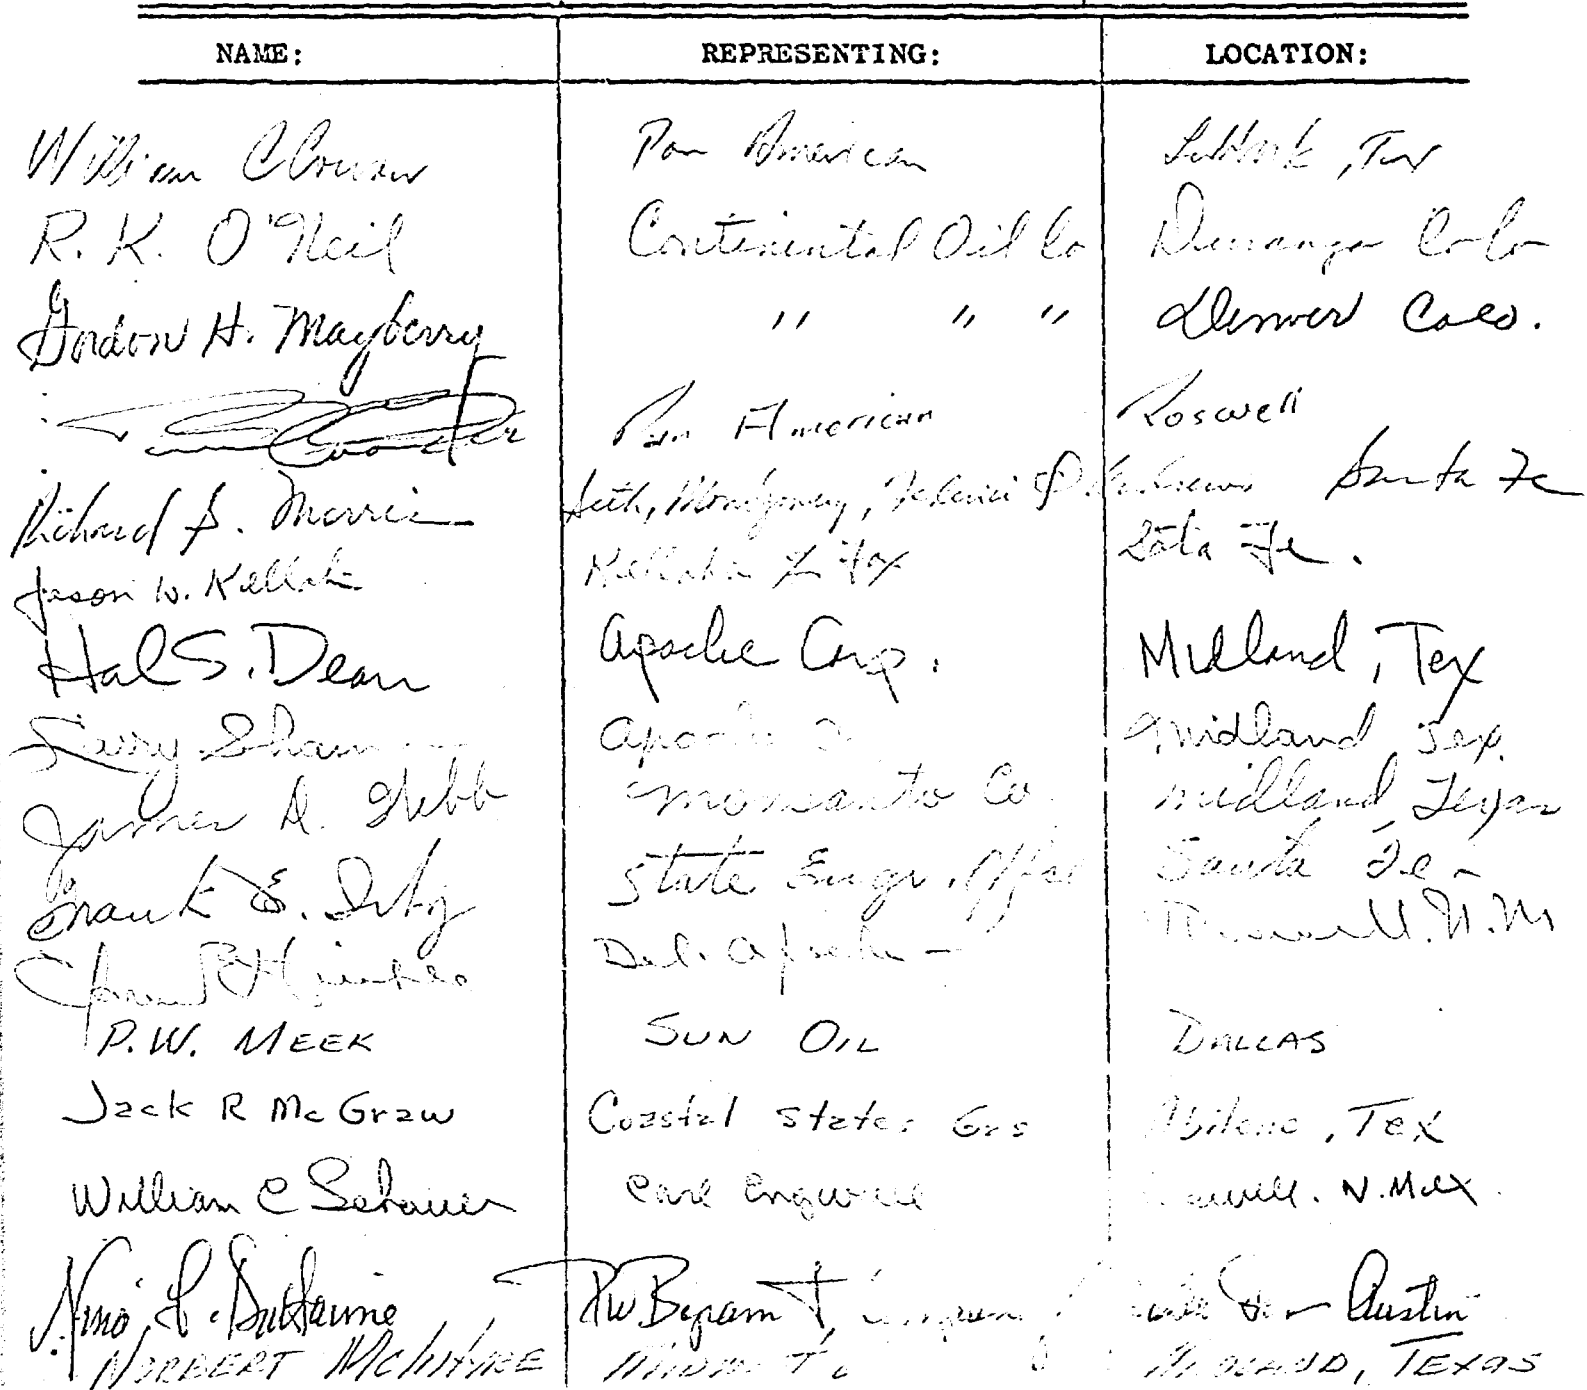 NAME: REPRESENTING: LOCATION:
William Pan American Lubbock, Tex
R. K. O'Neil Continental Oil Co Durango Colo
Gordon H. Mayberry " " " Denver Colo.
Pan American Roswell
Richard S. Morris Seth, Montgomery, Federici & Andrews Santa Fe
Jason W. Kellahin Kellahin & Fox Santa Fe.
Hal S. Dean Apache Corp. Midland, Tex
Larry Apache Midland, Tex.
James D. Monsanto Co. Midland, Texas
Frank E. Irby State Engr. Office Santa Fe
Del. Apache - Roswell. N.M
P.W. MEEK SUN OIL DALLAS
Jack R McGraw Coastal States Gas Abilene, Tex
William C Schauer Carl Engwall N. Mex.
RW Byram & Austin
NORBERT McINTYRE MIDLAND, TEXAS